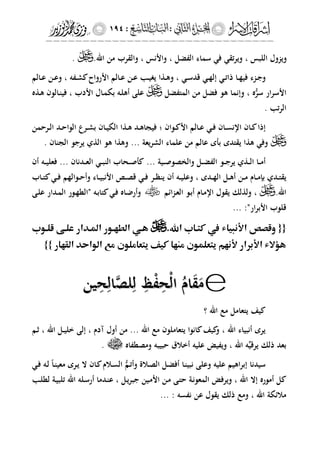 إشراق الإسراء ... الجزء الثاني : الباب التاسع : ١٩٤
ويزول اللبس ، ويرتقي في سماء الفضل ، والأنس ، والقرب من الله .
وجزء فيها ذاتي إلهي قدسي ، وهذا يغيب عن عالم الأرواح كشفه ، وعن عالم
الأسرار سرُّه ، وإنما هو فضل من المتفضل على أهله بكمال الأدب ، فينالون هذه
الرتب .
إذا كان الإنسان في عالم الأكوان ؛ فيجاهد هذا الكيان بشرع الواحد الرحمن
وفي هذا يقتدى بأى عالم من علماء الشريعة ... وهذا هو الذي يرجو الجنان .
أما الذي يرجو الفضل والخصوصية ... كأصحاب النبي العدنان ... فعليه أن
يقتدي بإمام من أهل الهدى ، وعليه أن ينظر في قصص الأنبياء وأحوالهم في كتاب
الله ، ولذلك يقول الإمام أبو العزائم وأرضاه في كتابه "الطهور المدار على
قلوب الأبرار": ...
{{ وقصص الأنبياء في كتاب الله هي الطهور المدار على قلوب
هؤلاء الأبرار لأنهم يتعلمون منها كيف يتعاملون مع الواحد القهار }}
مَقَامُ الْحِفْظِ لِلصَّالِحِين
كيف يتعامل مع الله ؟
يرى أنبياء الله ، وكيف كانوا يتعاملون مع الله ... من أول آدم ، إلى خليل الله ، ثم
بعد ذلك يرقيّه الله ، ويفيض عليه أخلاق حبيبه ومصطفاه .
سيدنا إبراهيم عليه وعلى نبينا أفضل الصلاة وأتمُّ السلام كان لا يرى معيناً له في
كل أموره إلا الله ، ويرفض المعونة حتى من الأمين جبريل ، عندما أرسله الله تلبية لطلب
ملائكة الله ، ومع ذلك يقول عن نفسه : ...